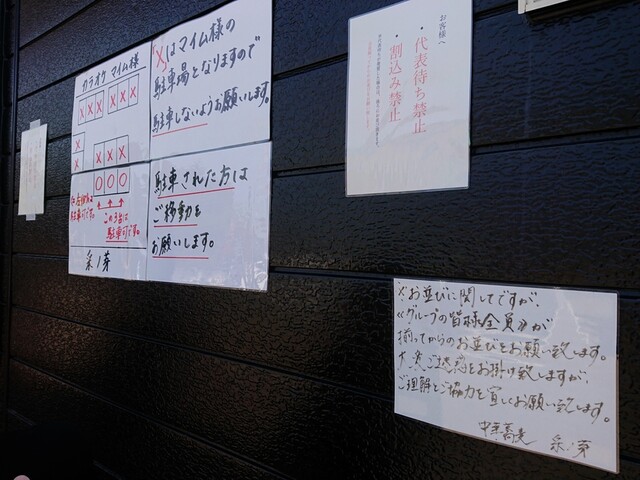 カラオケ マイム様
X X X X X X
X
X
X X X
○ ○ ○
この3台は
駐車可です。
駐車可です。
采ノ芽
「X」はマイム様の
駐車場となりますので
駐車しないようお願いします。
駐車された方は
ご移動を
お願いします。
お客様へ
・代表待ち禁止
・割込み禁止
※お並びに関してですが、
≪グループの皆様全員≫が
揃ってからのお並びをお願い致します。
大変ご迷惑をお掛け致しますが、
ご理解とご協力を宜しくお願い致します。
中華蕎麦 采ノ芽